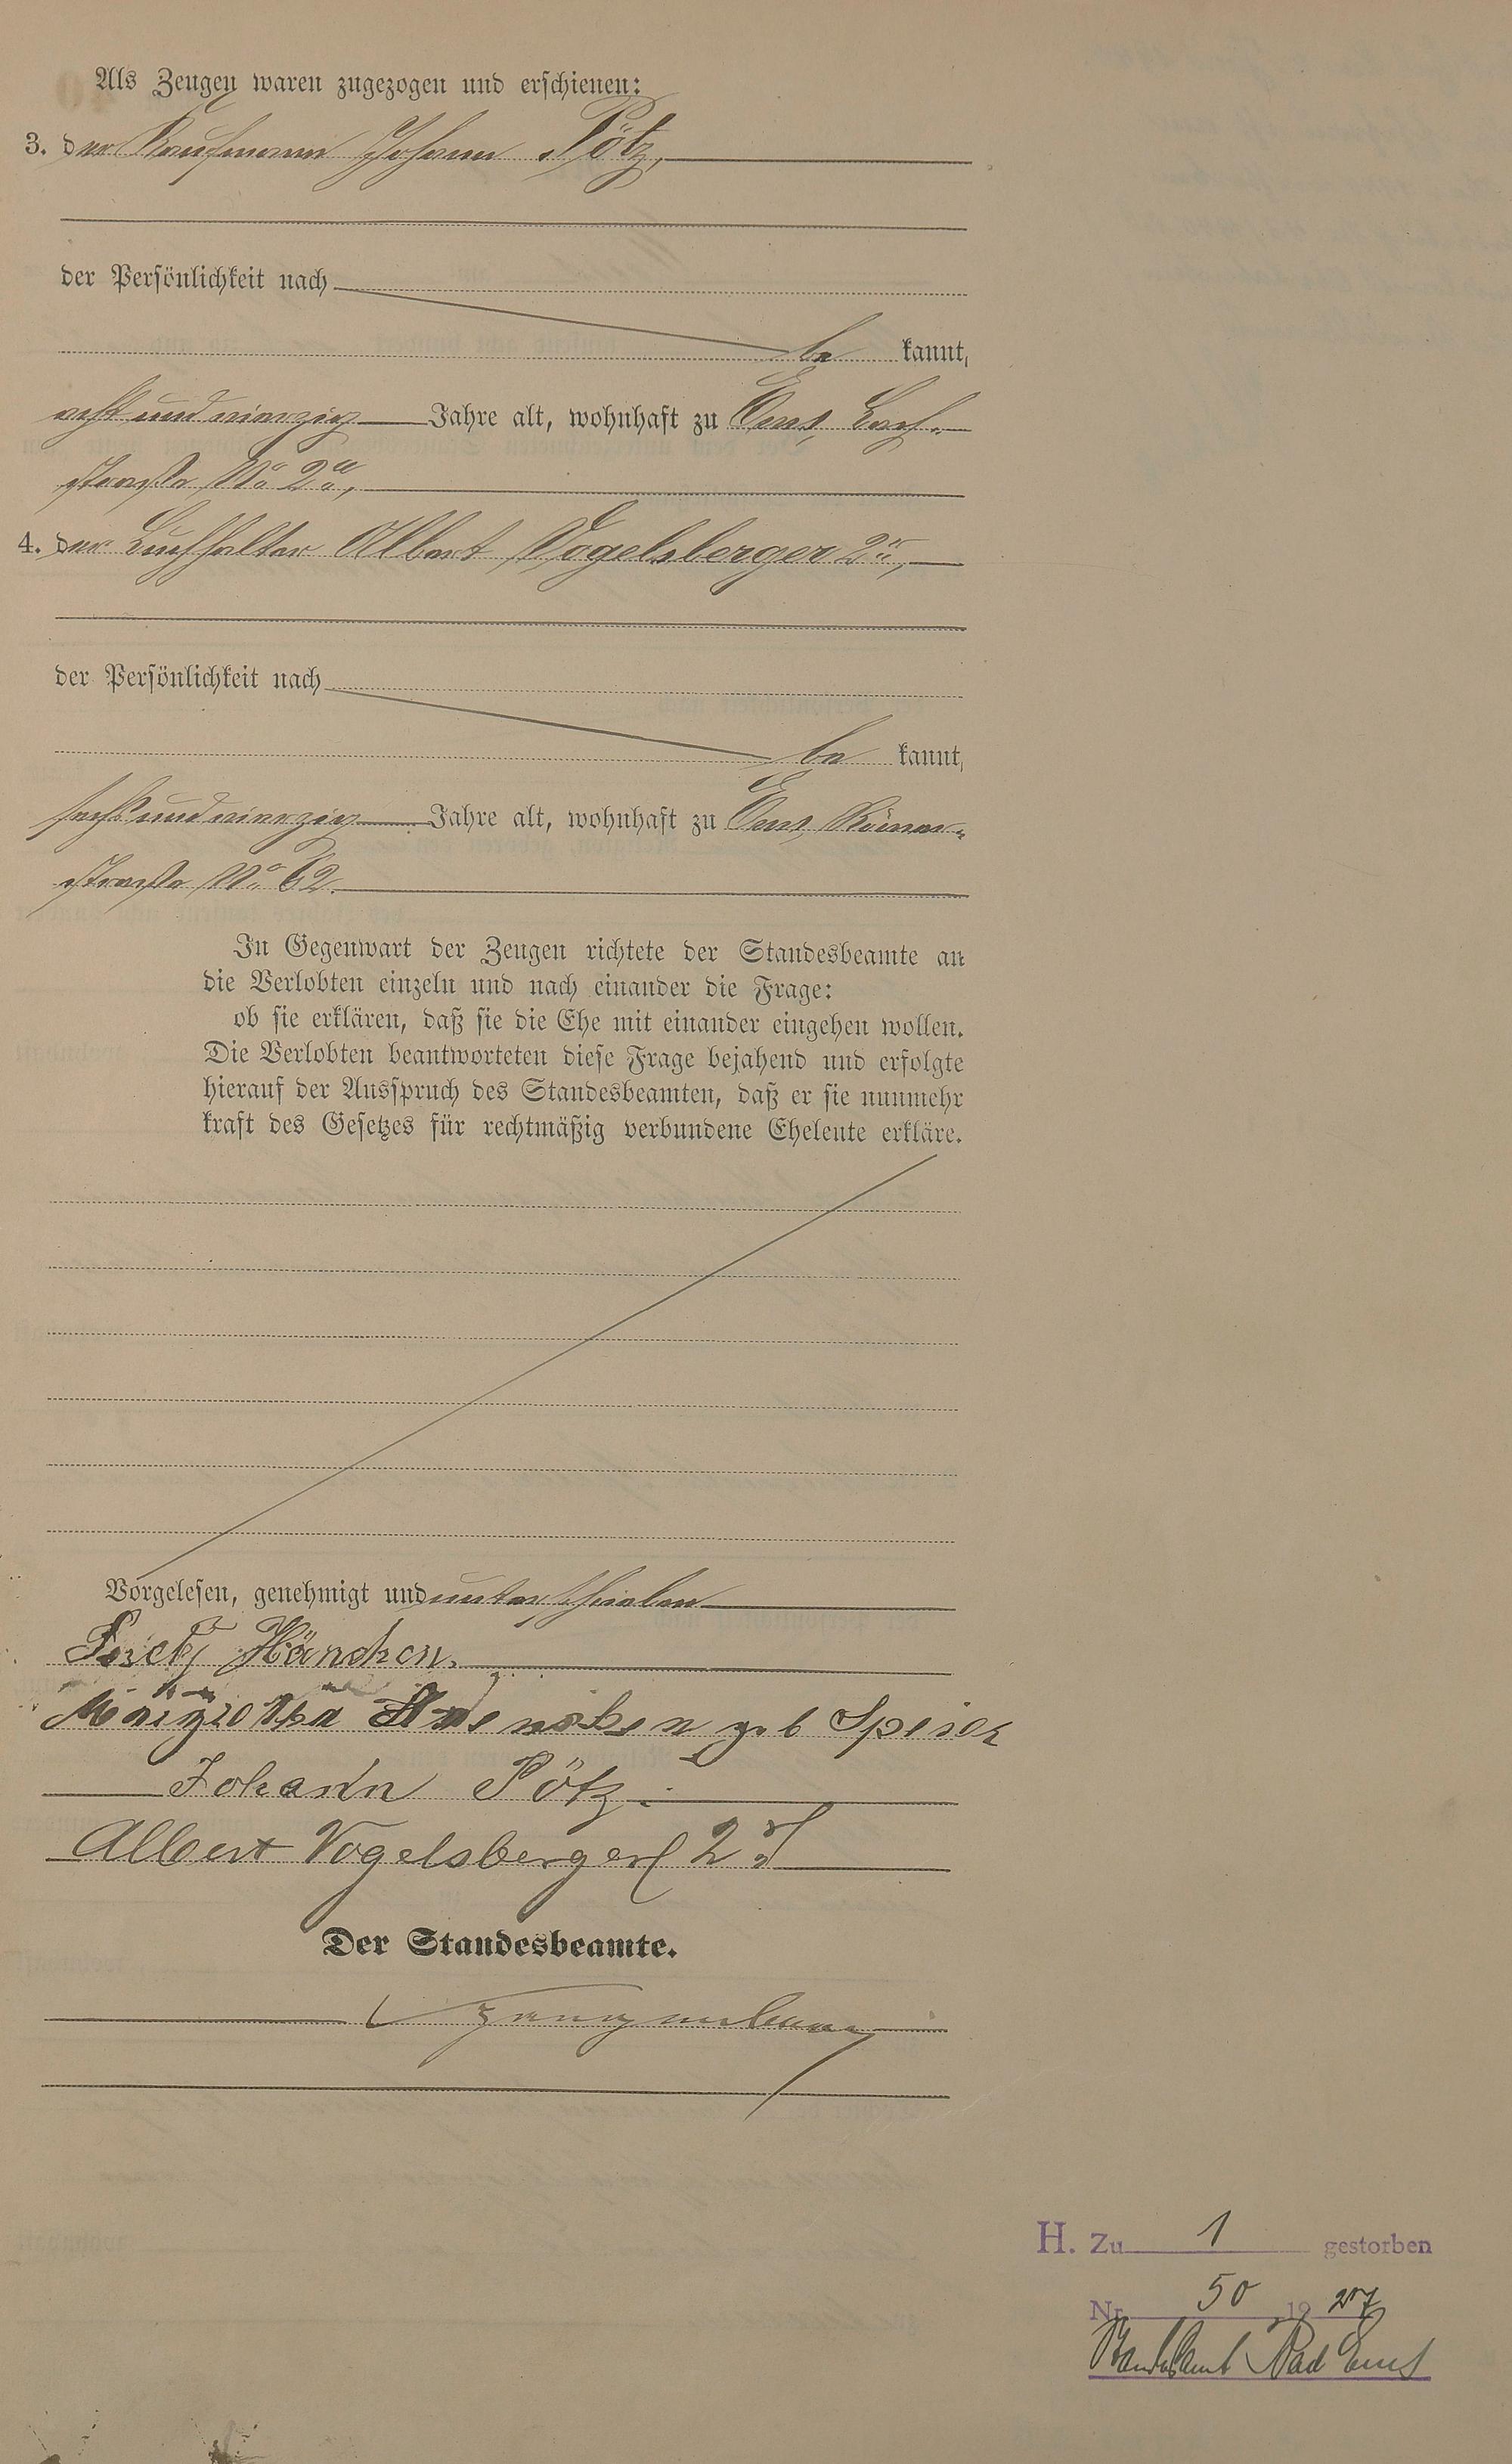 Als Zeugen waren zugezogen und erschienen:
3. der Kaufmann Johann Pötz,
der Persönlichkeit nach
be kannt,
acht und vierzig Jahre alt, wohnhaft zu Ems, Bach-
straße No 2a,
4. der Buchhalter Albert Vogelsberger 2r,
der Persönlichkeit nach
be kannt,
sechs und vierzig Jahre alt, wohnhaft zu Ems, Römer-
straße No 62.
In Gegenwart der Zeugen richtete der Standesbeamte an
die Verlobten einzeln und nach einander die Frage:
ob sie erklären, daß sie die Ehe mit einander eingehen wollen.
Die Verlobten beantworteten diese Frage bejahend und erfolgte
hierauf der Ausspruch des Standesbeamten, daß er sie nunmehr
kraft des Gesetzes für rechtmäßig verbundene Eheleute erkläre.
Vorgelesen, genehmigt und unterschrieben
Hänchen.
geb
Johann Pötz.
Albert Vogelsberger 2r
Der Standesbeamte.
H. Zu 1 gestorben
Nr. 50 1927
Standesamt Bad Ems